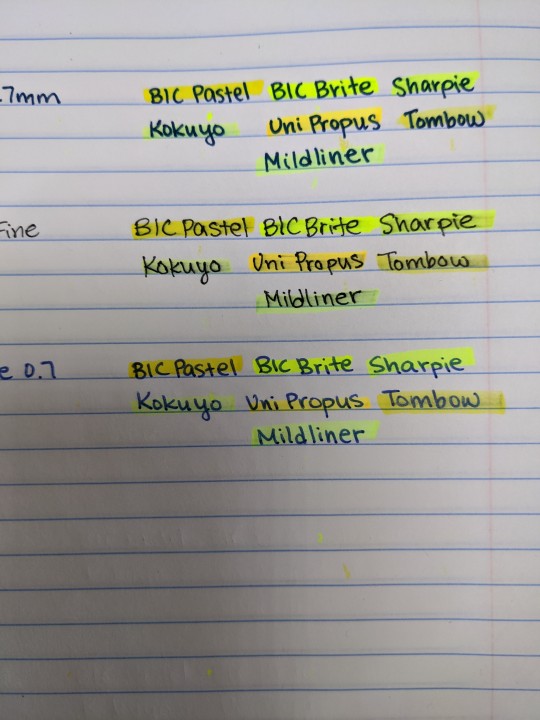 .7mm BIC Pastel BIC Brite Sharpie
Kokuyo Uni Propus Tombow
Mildliner
Fine BIC Pastel BIC Brite Sharpie
Kokuyo Uni Propus Tombow
Mildliner
e 0.7 BIC Pastel BIC Brite Sharpie
Kokuyo Uni Propus Tombow
Mildliner